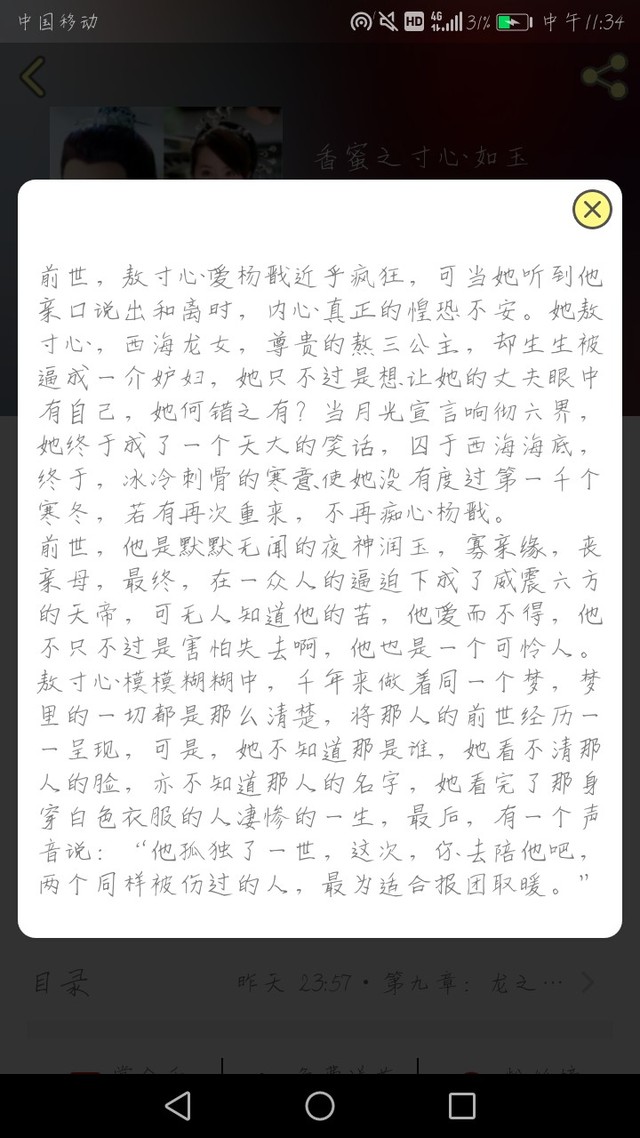 中国移动
HD 4G 31% 中午11:34
香蜜之寸心如玉
前世，敖寸心爱杨戬近乎疯狂，可当她听到他
亲口说出和离时，内心真正的惶恐不安。她敖
寸心，西海龙女，尊贵的熬三公主，却生生被
逼成一介妒妇，她只不过是想让她的丈夫眼中
有自己，她何错之有？当月光宣言响彻六界，
她终于成了一个天大的笑话，囚于西海海底，
终于，冰冷刺骨的寒意使她没有度过第一千个
寒冬，若有再次重来，不再痴心杨戬。
前世，他是默默无闻的夜神润玉，寡亲缘，丧
亲母，最终，在一众人的逼迫下成了威震六方
的天帝，可无人知道他的苦，他爱而不得，他
不只不过是害怕失去啊，他也是一个可怜人。
敖寸心模模糊糊中，千年来做着同一个梦，梦
里的一切都是那么清楚，将那人的前世经历一
一呈现，可是，她不知道那是谁，她看不清那
人的脸，亦不知道那人的名字，她看完了那身
穿白色衣服的人凄惨的一生，最后，有一个声
音说：“他孤独了一世，这次，你去陪他吧，
两个同样被伤过的人，最为适合报团取暖。”
目录 昨天 23:57·第九章：龙之…